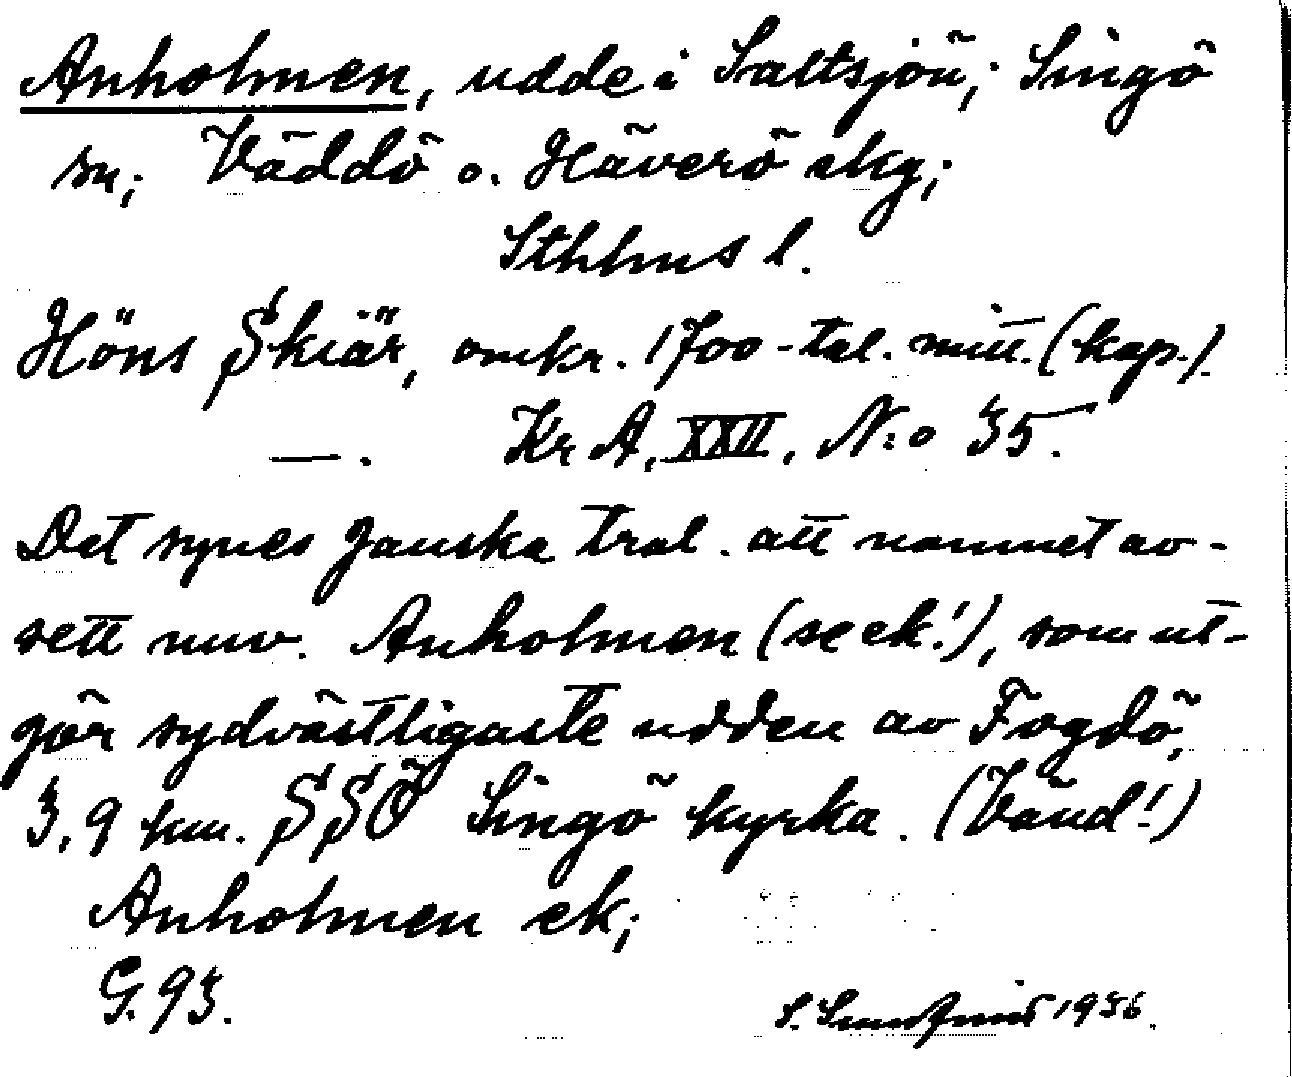 Anholmen, udde i Saltsjön; Singö
sn; Väddö o. Häverö skg;
Sthlms l.
Höns Skiär, omkr. 1700-tal. mitt. (kap.).
—. KrA, XXII, N:o 35.
Det synes ganska trol. att namnet av-
sett nuv. Anholmen (se ek!), som ut-
gör sydvästligaste udden av Fogdö,
3,9 km. SSÖ Singö kyrka. (Vänd!)
Anholmen ek;
G. 93.
S. 1936.